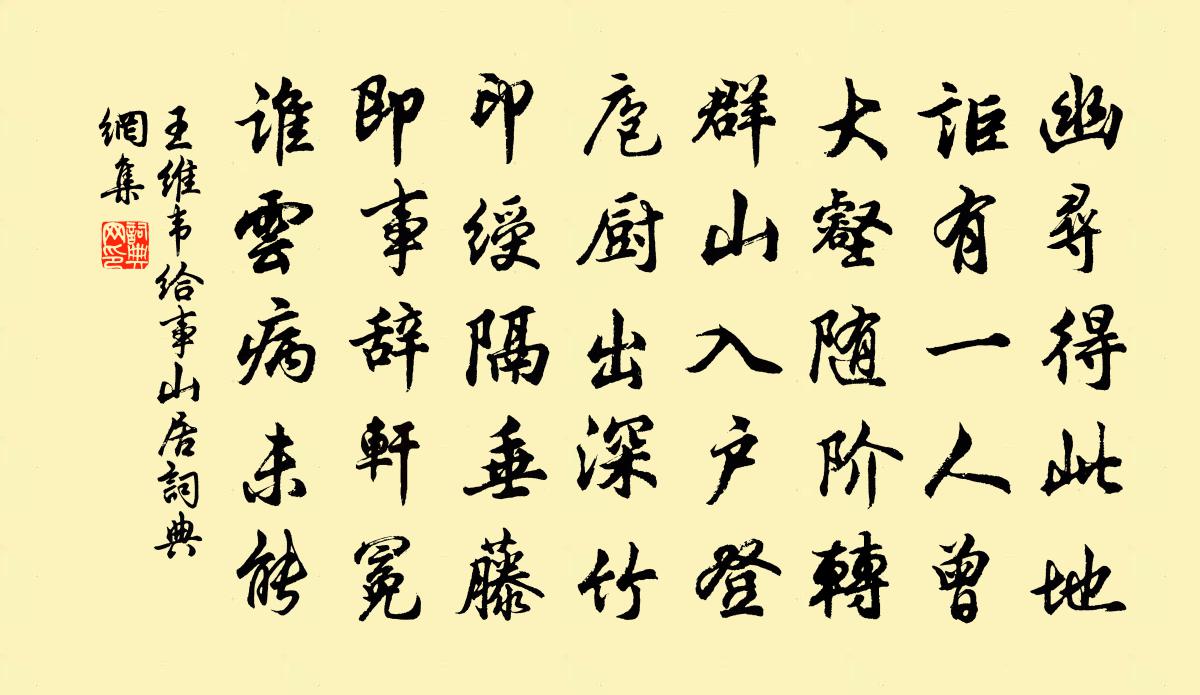 幽尋得此地
詎有一人曾
大壑随阶轉
群山入户登
庖厨出深竹
印綬隔垂藤
即事辞軒冕
谁雲病未能
王维韦给事山居詞典
網集
詞典網印